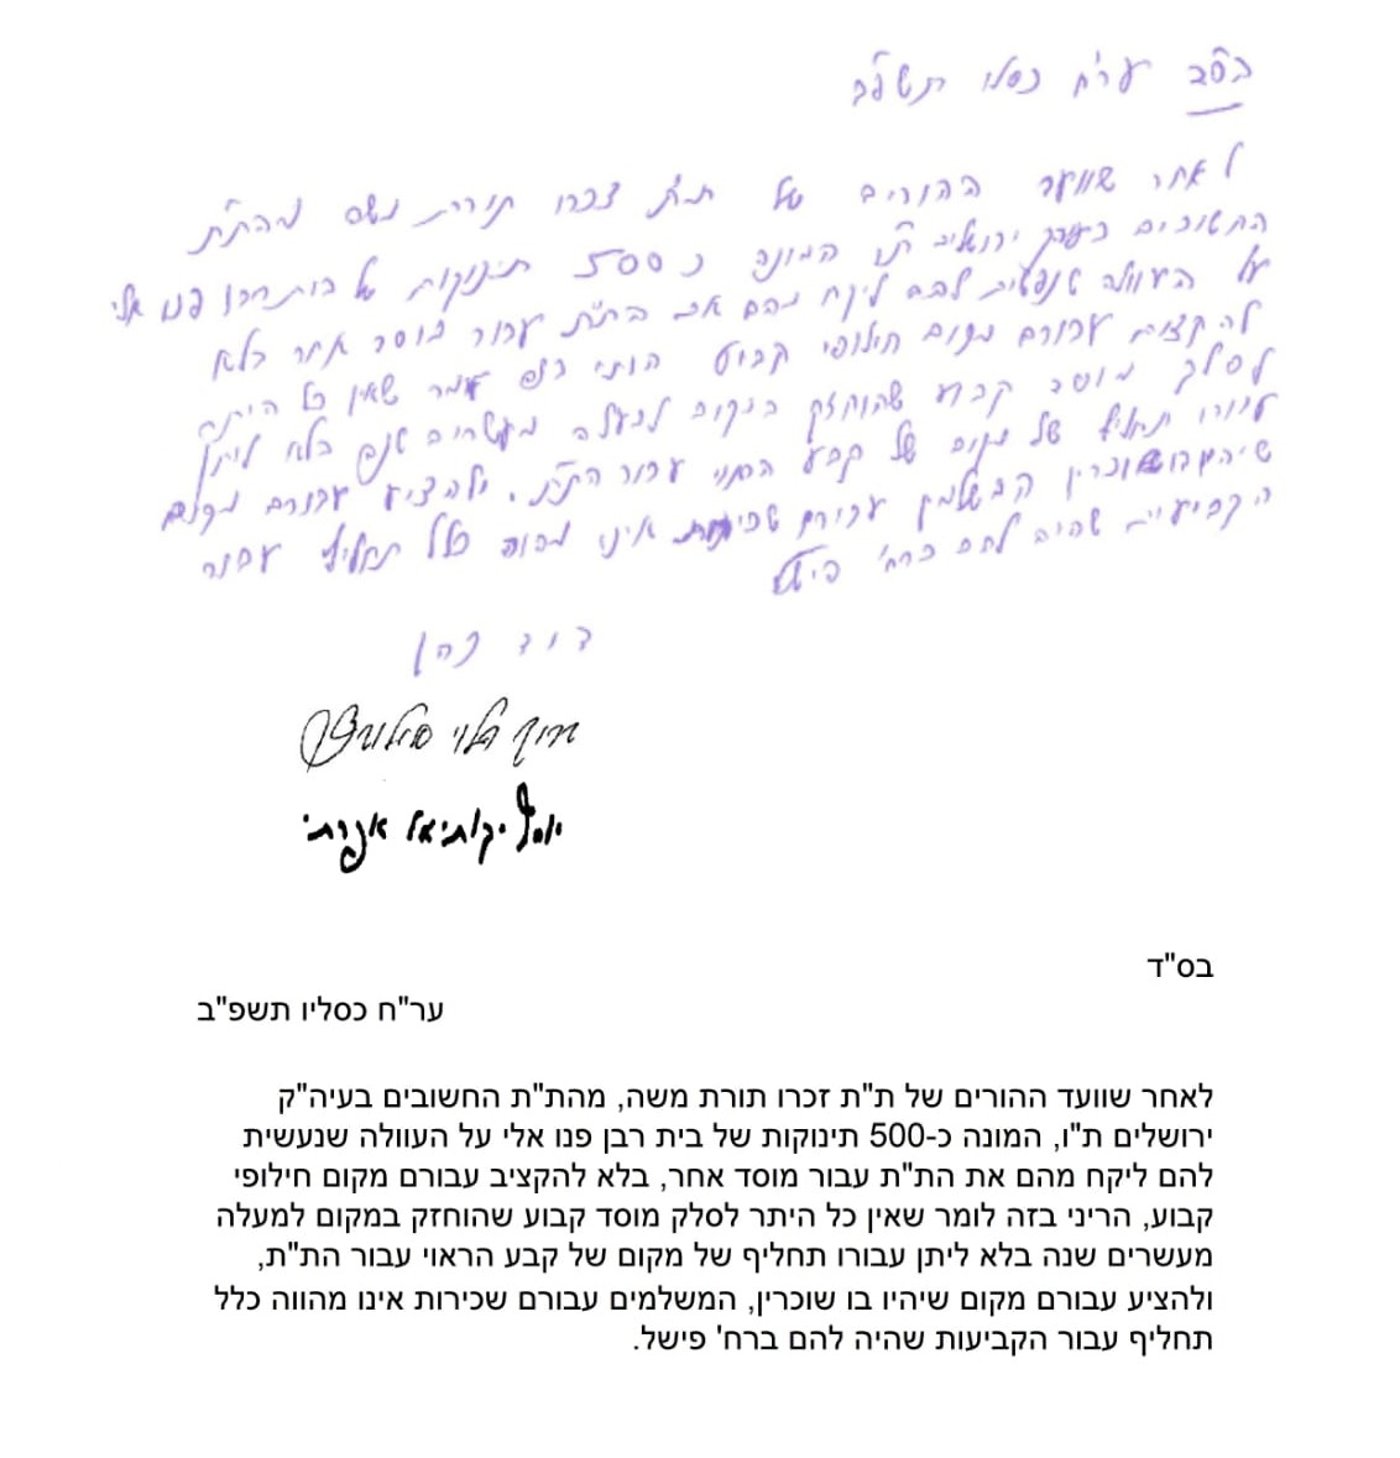 בס"ד ער"ח כסלו תשפ"ב
לאחר שוועד ההורים של ת"ת זכרו תורת משה מהת"ת
החשובים בעיה"ק ירושלים ת"ו המונה כ 500 תינוקות של בית רבן פנו אלי
על העוולה שנעשית להם ליקח מהם את הת"ת עבור מוסד אחר בלא
להקציב עבורם מקום חילופי קבוע הריני בזה לומר שאין כל היתר
לסלק מוסד קבוע שהוחזק במקום למעלה מעשרים שנה בלא ליתן
עבורו תחליף של מקום של קבע הראוי עבור הת"ת. ולהציע עבורם מקום
שיהיו בו שוכרין המשלמים עבורם שכירות אינו מהווה כלל תחליף עבור
הקביעות שהיה להם ברח' פישל
דוד כהן
ברוך הלוי סולובייצ'יק
יוסף יקותיאל אפרתי
בס"ד
ער"ח כסליו תשפ"ב
לאחר שוועד ההורים של ת"ת זכרו תורת משה, מהת"ת החשובים בעיה"ק
ירושלים ת"ו, המונה כ-500 תינוקות של בית רבן פנו אלי על העוולה שנעשית
להם ליקח מהם את הת"ת עבור מוסד אחר, בלא להקציב עבורם מקום חילופי
קבוע, הריני בזה לומר שאין כל היתר לסלק מוסד קבוע שהוחזק במקום למעלה
מעשרים שנה בלא ליתן עבורו תחליף של מקום של קבע הראוי עבור הת"ת,
ולהציע עבורם מקום שיהיו בו שוכרין, המשלמים עבורם שכירות אינו מהווה כלל
תחליף עבור הקביעות שהיה להם ברח' פישל.